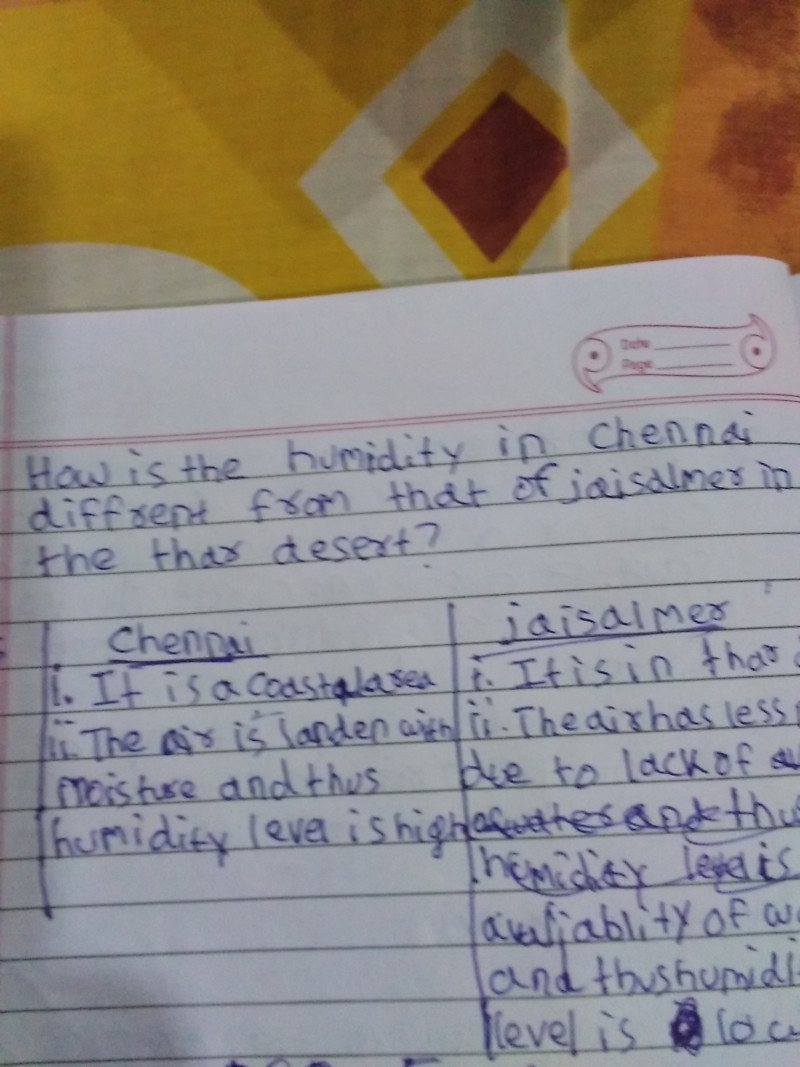 Date
Page
How is the humidity in Chennai
diffrent from that of jaisalmer in
the thar desert?
Chennai
i. It is a Coastal area
ii. The air is landen with
moisture and thus
humidity level is high
jaisalmer
i. It is in thar
ii. The air has less
due to lack of
and thu
hemidity level is
avaliablity of
and thus humidi
level is low